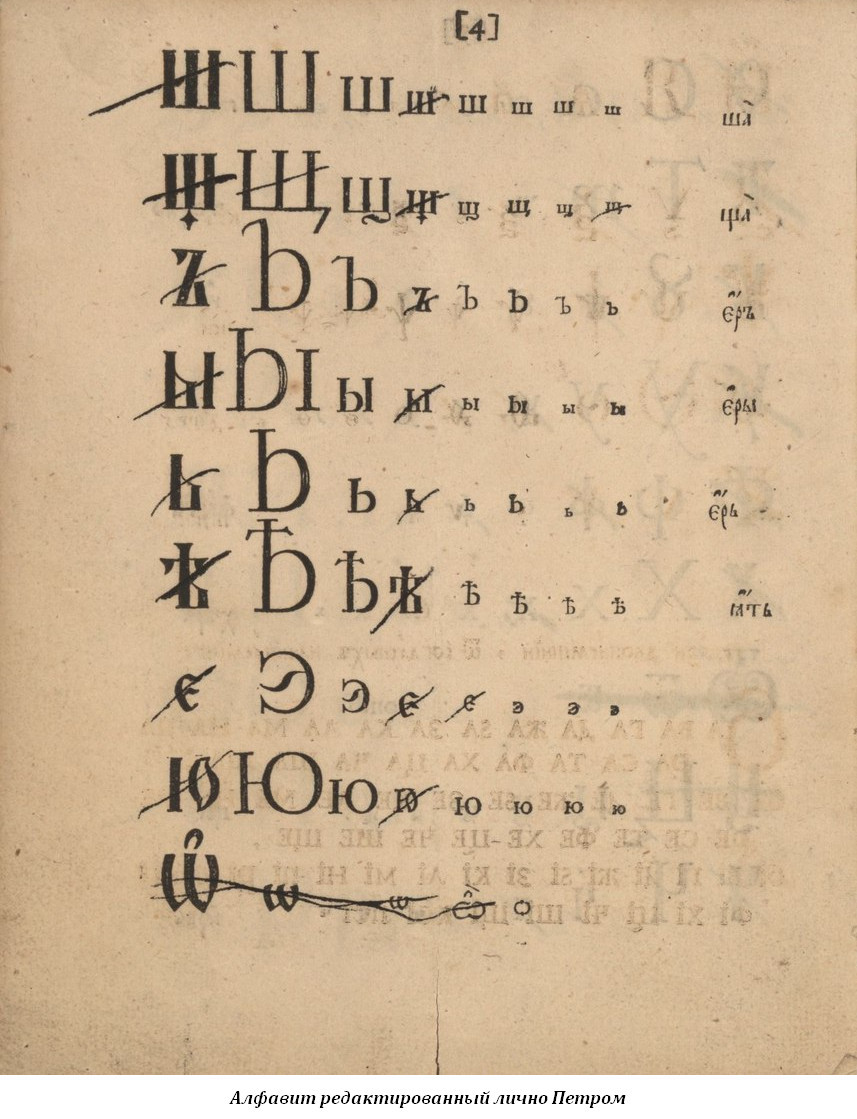 [4]
Ш Ш ш ш ш ш ш ш ша̀
Щ Щ щ щ щ щ щ щ ща̀
Ъ Ъ Ъ ъ Ъ Ъ Ъ ъ є҆́ръ
Ы Ы ы ы ы ы ы ы є҆ры̀
Ь Ь ь ь ь ь ь ь є҆́рь
Ѣ Ѣ ѣ ѣ ѣ ѣ ѣ ѣ ꙗ҆́ть
є Э э є є э э э
Ю Ю ю ю ю ю ю ю
Ѽ ѡ ѡ ѽ о
Алфавит редактированный лично Петром